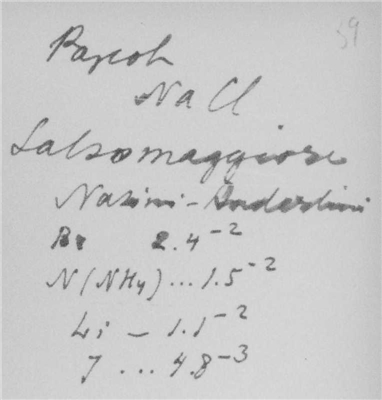 39
NaCl
Salsomaggiore
Nasini-Anderlini
Br 2.4⁻²
N(NH₄)...1.5⁻²
Li – 1.1⁻²
J ... 4.8⁻³